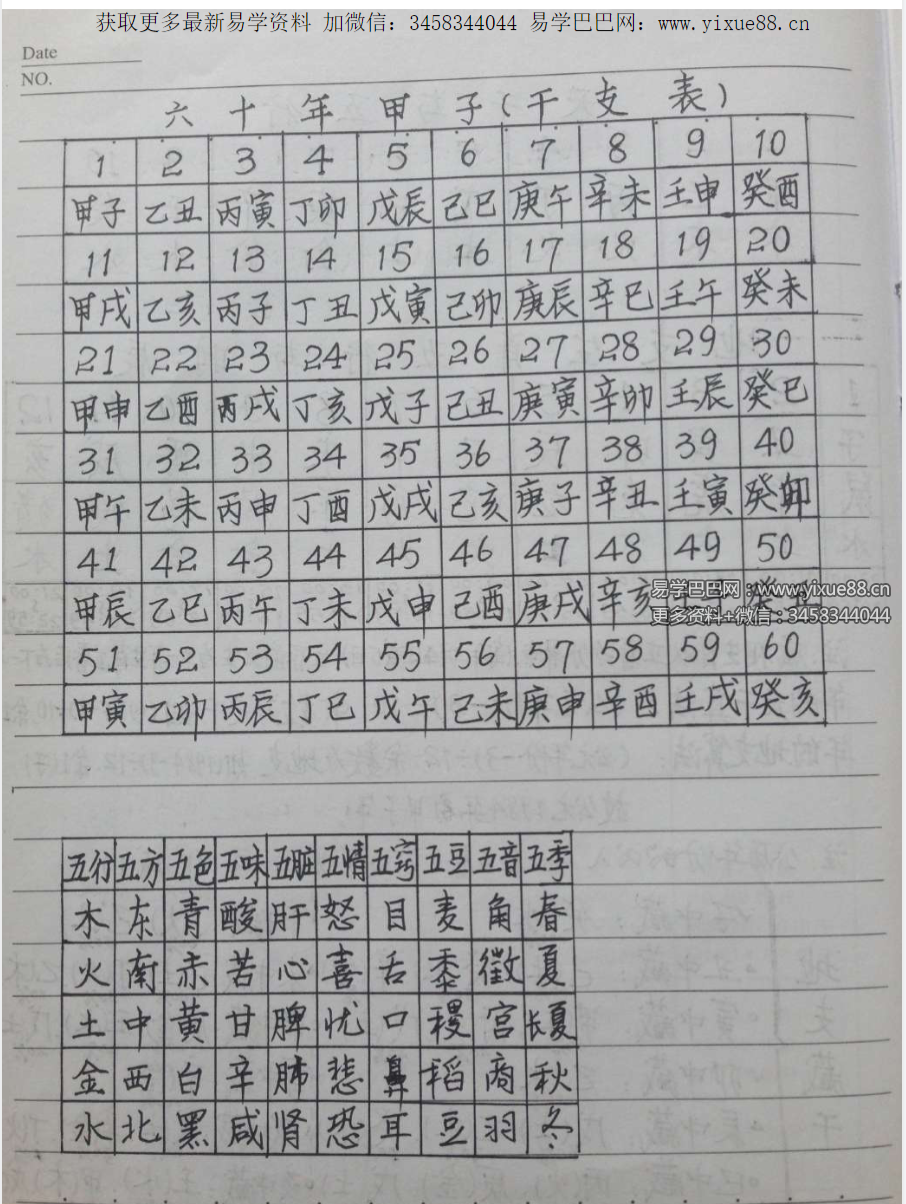 获取更多最新易学资料 加微信：3458344044 易学巴巴网：www.yixue88.cn
Date
NO.
六十年甲子(干支表)
1 2 3 4 5 6 7 8 9 10
甲子 乙丑 丙寅 丁卯 戊辰 己巳 庚午 辛未 壬申 癸酉
11 12 13 14 15 16 17 18 19 20
甲戌 乙亥 丙子 丁丑 戊寅 己卯 庚辰 辛巳 壬午 癸未
21 22 23 24 25 26 27 28 29 30
甲申 乙酉 丙戌 丁亥 戊子 己丑 庚寅 辛卯 壬辰 癸巳
31 32 33 34 35 36 37 38 39 40
甲午 乙未 丙申 丁酉 戊戌 己亥 庚子 辛丑 壬寅 癸卯
41 42 43 44 45 46 47 48 49 50
易学巴巴网：www.yixue88.cn
甲辰 乙巳 丙午 丁未 戊申 己酉 庚戌 辛亥
更多资料+微信：3458344044
51 52 53 54 55 56 57 58 59 60
甲寅 乙卯 丙辰 丁巳 戊午 己未 庚申 辛酉 壬戌 癸亥
五行 五方 五色 五味 五脏 五情 五窍 五豆 五音 五季
木 东 青 酸 肝 怒 目 麦 角 春
火 南 赤 苦 心 喜 舌 黍 徵 夏
土 中 黄 甘 脾 忧 口 稷 宫 长夏
金 西 白 辛 肺 悲 鼻 稻 商 秋
水 北 黑 咸 肾 恐 耳 豆 羽 冬